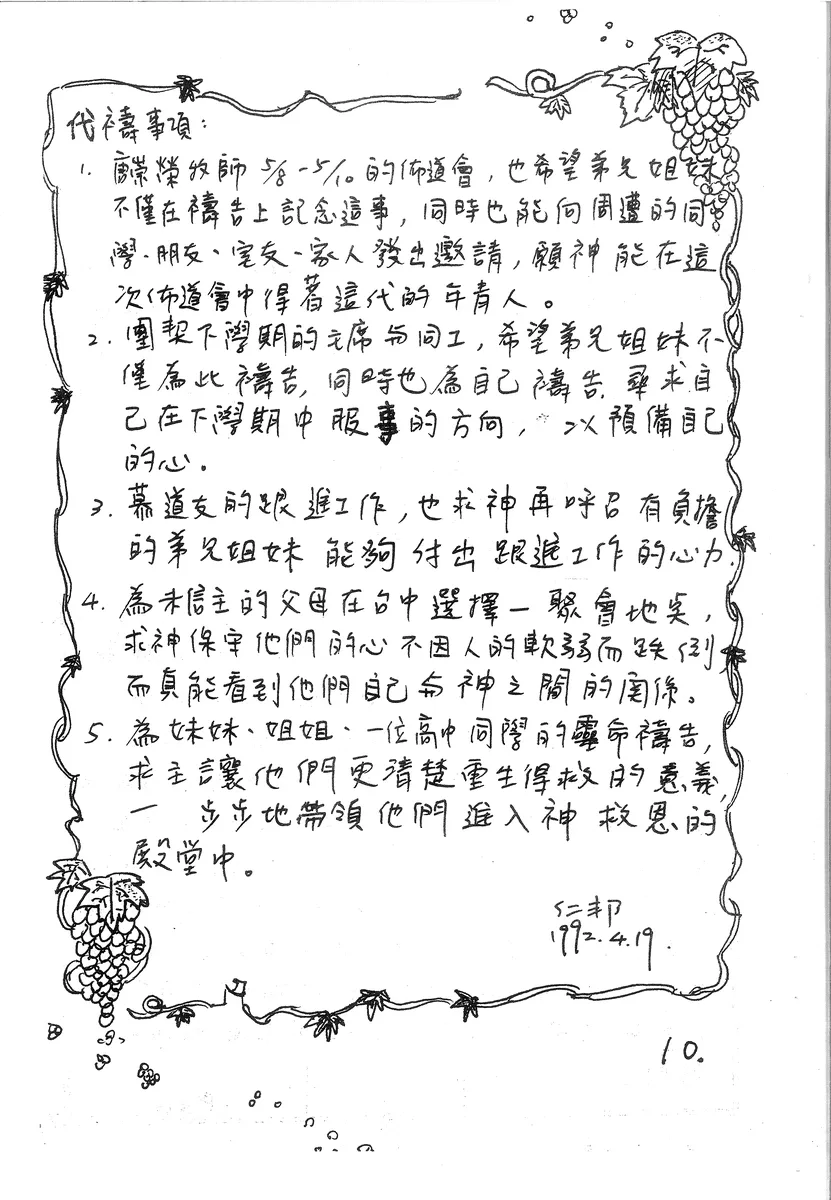 代禱事項：
1. 唐崇榮牧師 5/8 - 5/10 的佈道會，也希望弟兄姐妹
不僅在禱告上記念這事，同時也能向周遭的同
學、朋友、室友、家人發出邀請，願神能在這
次佈道會中得著這代的年青人。
2. 團契下學期的主席与同工，希望弟兄姐妹不
僅為此禱告，同時也為自己禱告，尋求自
己在下學期中服事的方向，以預備自己
的心。
3. 慕道友的跟進工作，也求神再呼召有負擔
的弟兄姐妹能夠付出跟進工作的心力.
4. 為未信主的父母在台中選擇一聚會地奌，
求神保守他們的心不因人的軟弱而跌倒，
而真能看到他們自己与神之間的関係。
5. 為妹妹、姐姐、一位高中同學的靈命禱告，
求主讓他們更清楚重生得救的意義，
一步步地帶領他們進入神救恩的
殿堂中。
仁邦
1992.4.19.
10.